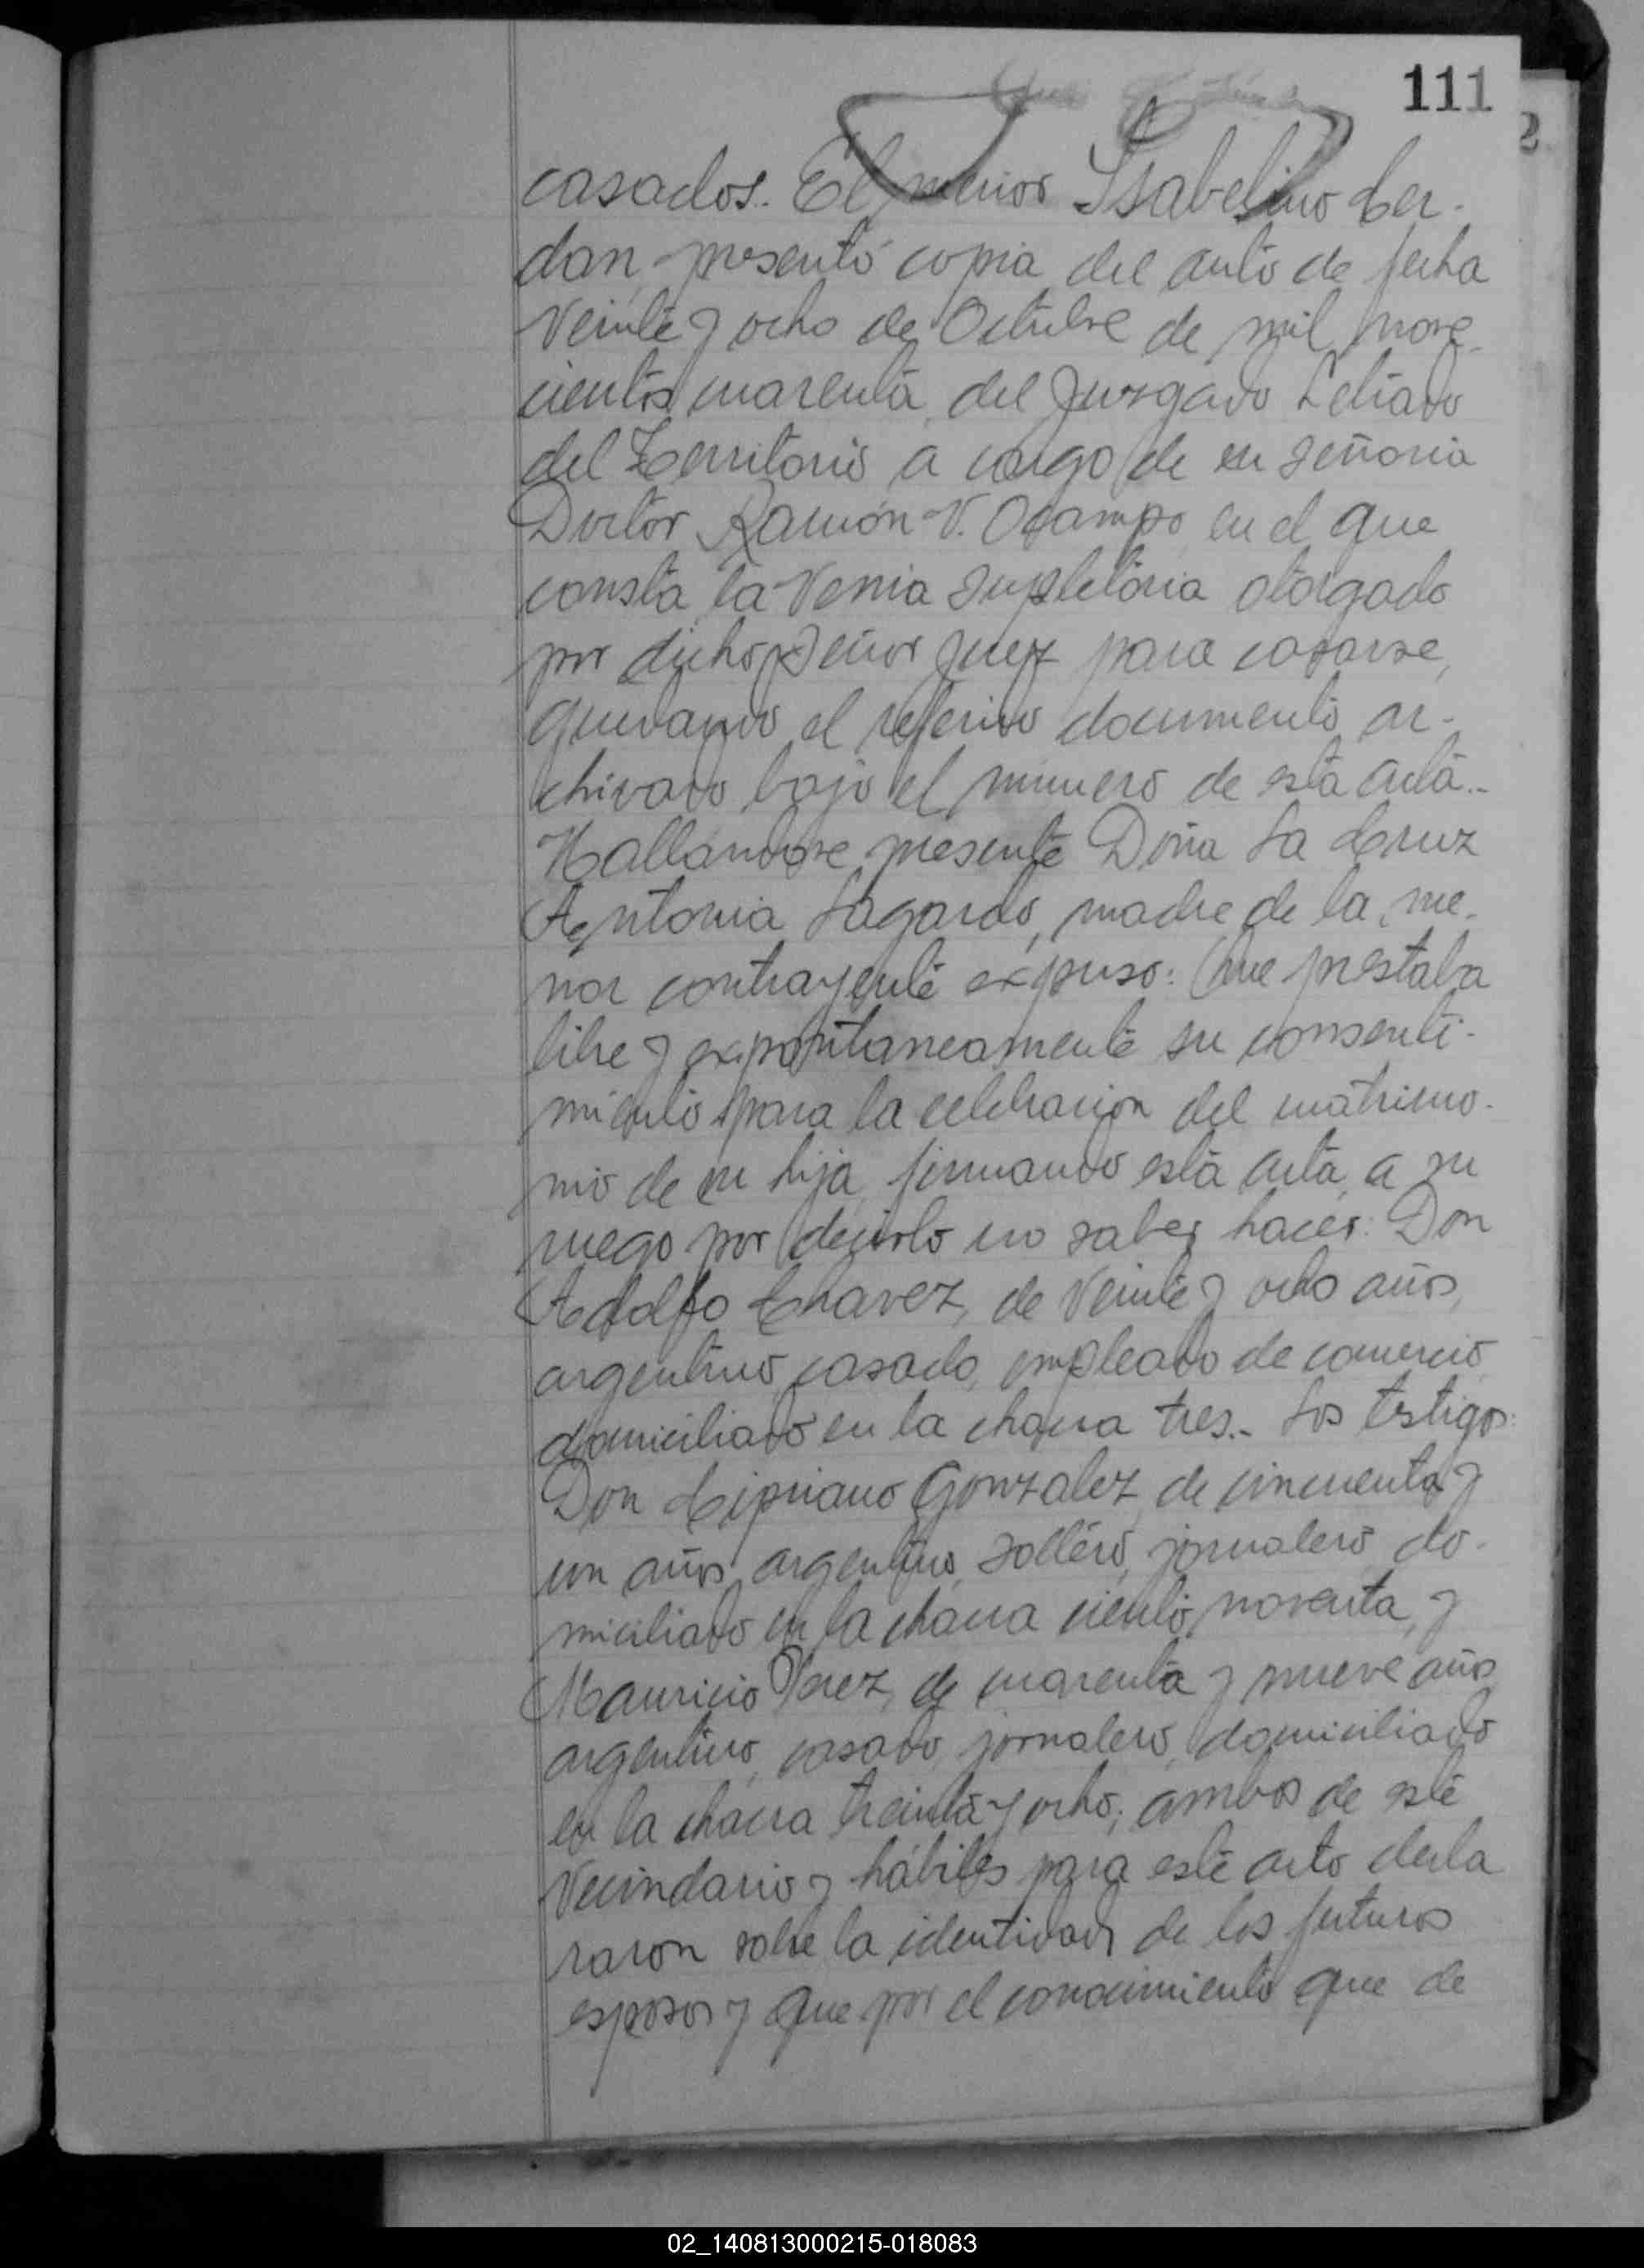 111
casados. El menor Ysabelino Cer-
dan, presentó copia del auto de fecha
Veinte y ocho de Octubre de mil nove-
cientos cuarenta, del Juzgado Letrado
del Territorio a cargo de su Señoria
Doctor Ramón V. Ocampo en el que
consta la Venia Supletoria otorgado
por dicho Señor Juez para casarse,
quedando el referido documento ar-
chivado bajo el número de esta acta.-
Hallandose presente Doña La Cruz
Antonia Lagardo, madre de la me-
nor contrayente expuso: Que prestaba
libre y expontaneamente su consenti-
miento para la celebracion del matrimo-
nio de su hija, firmando esta acta, a su
ruego por decirlo no saber hacer: Don
Adolfo Chavez, de Veinte y ocho años,
argentino, casado, empleado de comercio
domiciliado en la chacra tres.- Los testigos:
Don Cipriano Gonzalez, de cincuenta y
un años, argentino, soltero, jornalero, do-
miciliado en la chacra ciento noventa, y
Mauricio Perez, de cuarenta y nueve años
argentino, casado, jornalero, domiciliado
en la chacra treinta y ocho; ambos de este
Vecindario y hábiles para este acto decla
raron sobre la identidad de los futuros
esposos y que por el conocimiento que de
02_140813000215-018083